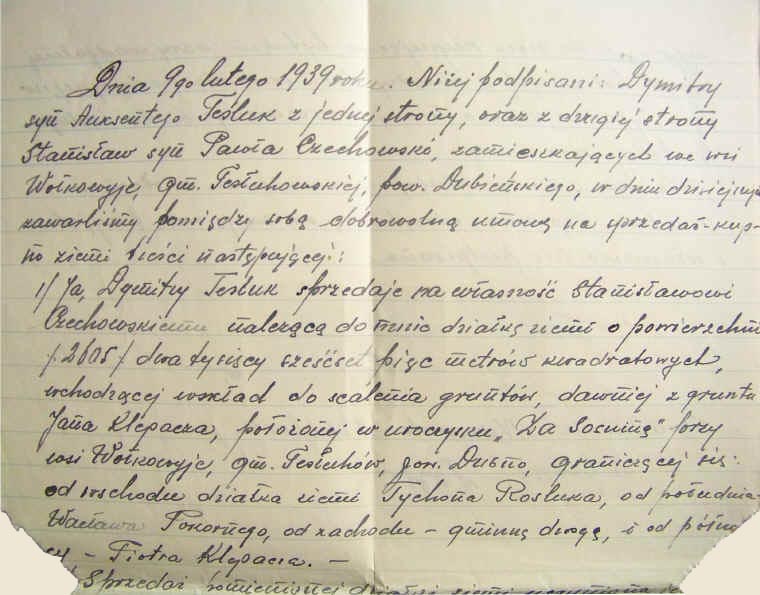 Dnia 9go lutego 1939 roku. Niżej podpisani: Dymitry
syn Auksentego Tesluk z jednej strony, oraz z drugiej strony
Stanisław syn Pawła Czechowski, zamieszkających we wsi
Wołkowyje, gm. Tesłuhowskiej, pow. Dubieńskiego, w dniu dzisiejszym
zawarliśmy pomiędzy sobą dobrowolną umowę na sprzedaż-kup-
no ziemi treści następującej:
1/ Ja, Dymitry Tesluk sprzedaję na własność Stanisławowi
Czechowskiemu należącą do mnie działkę ziemi o powierzchni
/2605/ dwa tysiący sześćset pięć metrów kwadratowych,
wchodzącej wskład do scalenia gruntów, dawniej z gruntu
Jana Klepacza, położonej w uroczysku „Za Sosniną" przy
wsi Wołkowyje, gm. Tesłuhów, pow. Dubno, graniczącej się:
od wschodu działka ziemi Tychona Rosluka, od południa-
Wacława Pokornego, od zachodu - gminną drogą, i od półno
cy - Piotra Klepacza. -
Sprzedaż działki ziemi